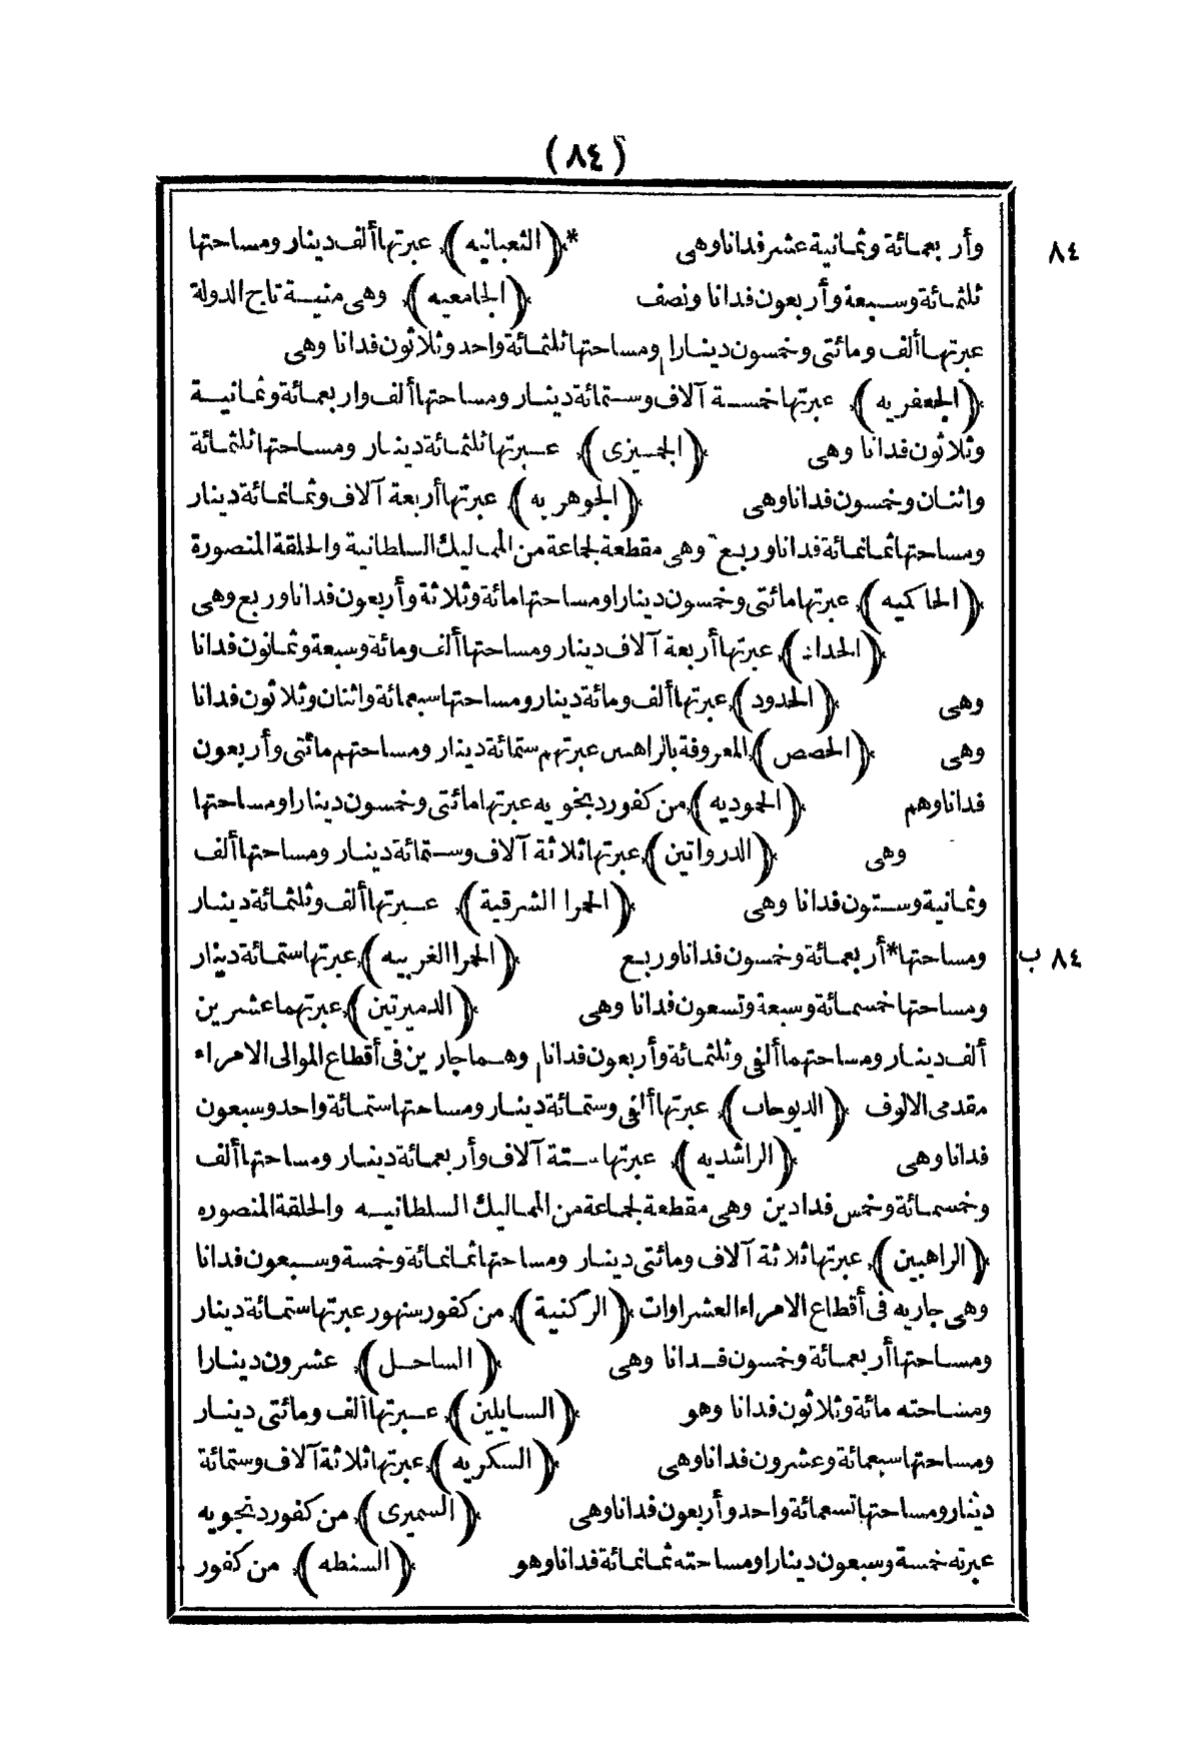 (٨٤)
٨٤
وأربعمائة وثمانية عشر فدانا وهى *﴿الثعبانيه﴾ عبرتها ألف دينار ومساحتها
ثلثمائة وسبعة وأربعون فدانا ونصف ﴿الجامعيه﴾ وهى منية تاج الدولة
عبرتها ألف ومائتى وخمسون دينارا ومساحتها ثلثمائة واحد وثلاثون فدانا وهى
﴿الجعفريه﴾ عبرتها خمسة آلاف وستمائة دينار ومساحتها ألف واربعمائة وثمانية
وثلاثون فدانا وهى ﴿الجميزى﴾ عبرتها ثلثمائة دينار ومساحتها ثلثمائة
واثنان وخمسون فدانا وهى ﴿الجوهريه﴾ عبرتها أربعة آلاف وثمانمائة دينار
ومساحتها ثمانمائة فدانا وربع وهى مقطعة لجماعة من المماليك السلطانية والحلقة المنصورة
﴿الحاكميه﴾ عبرتها مائتى وخمسون دينارا ومساحتها مائة وثلاثة وأربعون فدانا وربع وهى
﴿الحداد﴾ عبرتها أربعة آلاف دينار ومساحتها ألف ومائة وسبعة وثمانون فدانا
وهى ﴿الحدود﴾ عبرتها ألف ومائة دينار ومساحتها سبعمائة واثنان وثلاثون فدانا
وهى ﴿الحصص﴾ المعروفة بالراهبين عبرتهم ستمائة دينار ومساحتهم مائتى وأربعون
فدانا وهم ﴿الحموديه﴾ من كفور دبخويه عبرتها مائتى وخمسون دينارا ومساحتها
وهى ﴿الدرواتين﴾ عبرتها ثلاثة آلاف وستمائة دينار ومساحتها ألف
وثمانية وستون فدانا وهى ﴿الحمرا الشرقية﴾ عبرتها ألف وثلثمائة دينار
٨٤ ب
ومساحتها* أربعمائة وخمسون فدانا وربع ﴿الحمرا الغربيه﴾ عبرتها ستمائة دينار
ومساحتها خمسمائة وسبعة وتسعون فدانا وهى ﴿الدميرتين﴾ عبرتهما عشرين
ألف دينار ومساحتهما ألفى وثلثمائة وأربعون فدانا وهما جارين فى أقطاع الموالى الامراء
مقدمى الالوف ﴿الديوحات﴾ عبرتها ألفى وستمائة دينار ومساحتها ستمائة واحد وسبعون
فدانا وهى ﴿الراشديه﴾ عبرتها ستة آلاف وأربعمائة دينار ومساحتها ألف
وخمسمائة وخمس فدادين وهى مقطعة لجماعة من المماليك السلطانيه والحلقة المنصوره
﴿الراهبين﴾ عبرتها ثلاثة آلاف ومائتى دينار ومساحتها ثمانمائة وخمسة وسبعون فدانا
وهى جاريه فى أقطاع الامراء العشراوات ﴿الركنية﴾ من كفور سنهور عبرتها ستمائة دينار
ومساحتها أربعمائة وخمسون فدانا وهى ﴿الساحل﴾ عشرون دينارا
ومساحته مائة وثلاثون فدانا وهو ﴿السايلين﴾ عبرتها ألف ومائتى دينار
ومساحتها سبعمائة وعشرون فدانا وهى ﴿السكريه﴾ عبرتها ثلاثة آلاف وستمائة
دينار ومساحتها تسعمائة واحد وأربعون فدانا وهى ﴿السميرى﴾ من كفور دنجويه
عبرته خمسة وسبعون دينارا ومساحته ثمانمائة فدانا وهو ﴿السنطه﴾ من كفور